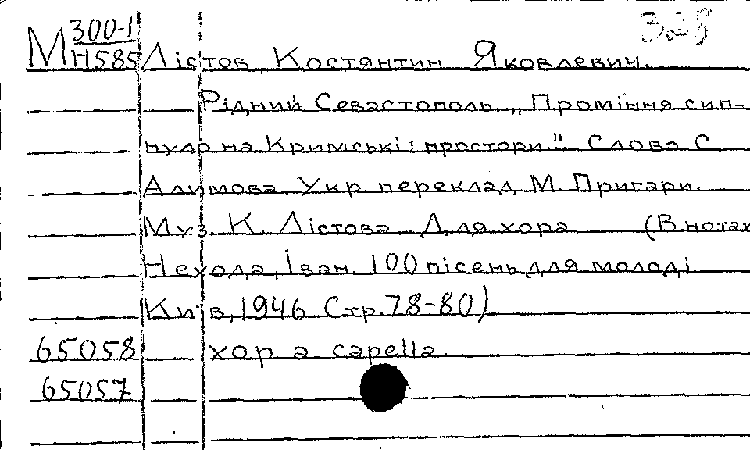 328
М 300-1
Н585 Лістов Костянтин Яковлевич.
Рідний Севастополь „Проміння сип-
нуло на Кримські простори." Слова С
Алимова Укр переклад М. Пригари.
Муз. К. Лістова Для хора (В нотах
Нехода Іван. 100 пісень для молоді
Київ, 1946 Стр. 78-80)
65058 хор a capella.
65057